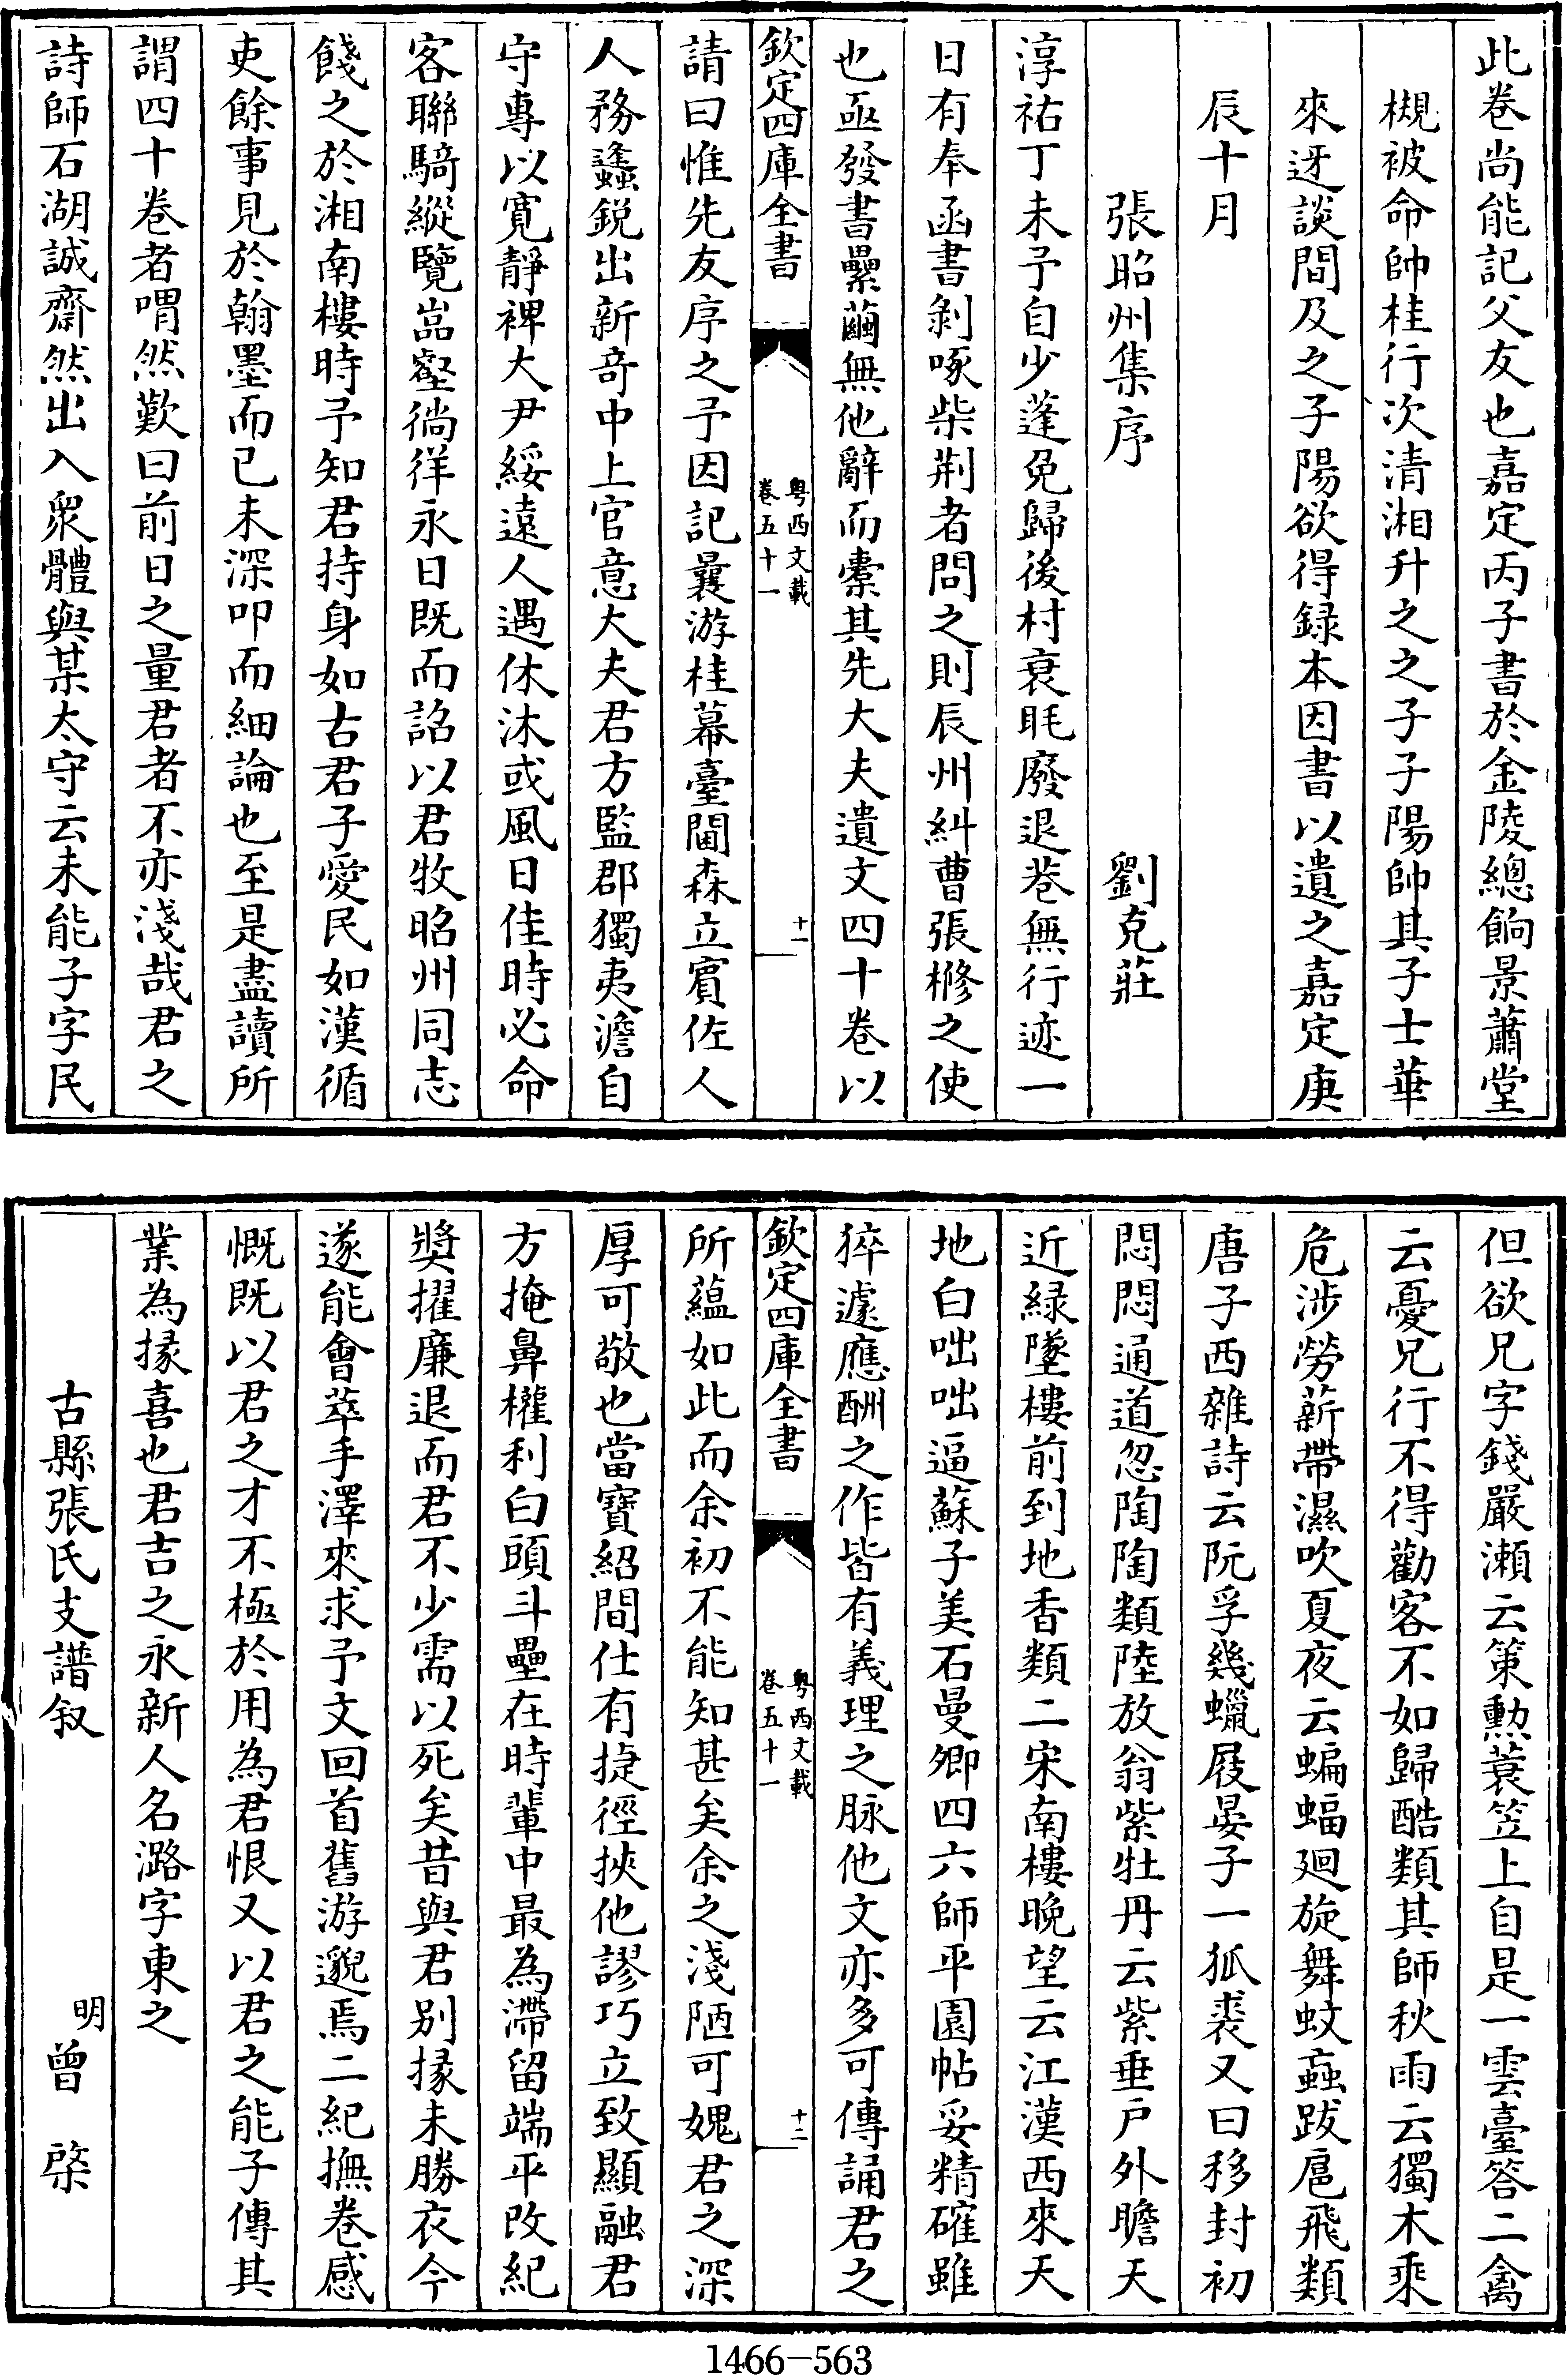 此卷尚能記父友也嘉定丙子書於金陵總餉景蕭堂
槻被命帥桂行次清湘升之之子子陽帥其子士華
來迓談間及之子陽欲得録本因書以遺之嘉定庚
辰十月
張昭州集序　劉克莊
淳祐丁未予自少蓬免歸後村衰眊廢退巷無行迹一
日有奉函書剝啄柴荆者問之則辰州糾曹張樤之使
也亟發書纍繭無他辭而橐其先大夫遺文四十卷以
欽定四庫全書
粤西文載
卷五十一
十一
請曰惟先友序之予因記曩游桂幕臺閫森立賓佐人
人務蠭銳出新奇中上官意大夫君方監郡獨夷澹自
守專以寬靜裨大尹綏遠人遇休沐或風日佳時必命
客聯騎縱覽嵓壑徜徉永日既而詔以君牧昭州同志
餞之於湘南樓時予知君持身如古君子愛民如漢循
吏餘事見於翰墨而已未深叩而細論也至是盡讀所
謂四十卷者喟然歎曰前日之量君者不亦淺哉君之
詩師石湖誠齋然出入衆體與某太守云未能子字民
但欲兄字錢嚴瀨云策勳蓑笠上自是一雲臺答二禽
云憂兄行不得勸客不如歸酷類其師秋雨云獨木乘
危涉勞薪帶濕吹夏夜云蝙蝠廻旋舞蚊蝱跋扈飛類
唐子西雜詩云阮孚幾蠟屐晏子一狐裘又曰移封初
悶悶通道忽陶陶類陸放翁紫牡丹云紫垂戶外瞻天
近緑墜樓前到地香類二宋南樓晚望云江漢西來天
地白咄咄逼蘇子美石曼卿四六師平園帖妥精確雖
猝遽應酬之作皆有義理之脉他文亦多可傳誦君之
欽定四庫全書
粤西文載
卷五十一
十二
所蘊如此而余初不能知甚矣余之淺陋可媿君之深
厚可敬也當寶紹間仕有捷徑挾他謬巧立致顯融君
方掩鼻權利白頭斗壘在時輩中最為滯留端平改紀
奬擢廉退而君不少需以死矣昔與君别掾未勝衣今
遂能會萃手澤來求予文回首舊游邈焉二紀撫卷感
慨既以君之才不極於用為君恨又以君之能子傳其
業為掾喜也君吉之永新人名潞字東之
古縣張氏支譜叙　明曾棨
1466-563